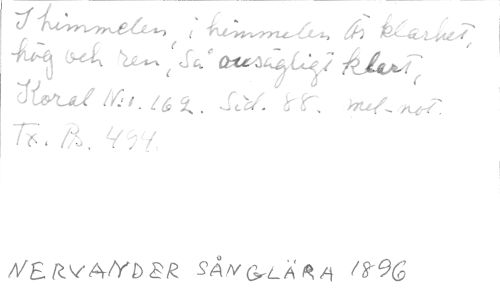 I himmelen, i himmelen är klarhet,
hög och ren, så outsägligt klart,
Koral N:o. 162. Sid. 88. mel-not.
Tx. Ps. 494.
NERVANDER SÅNGLÄRA 1896